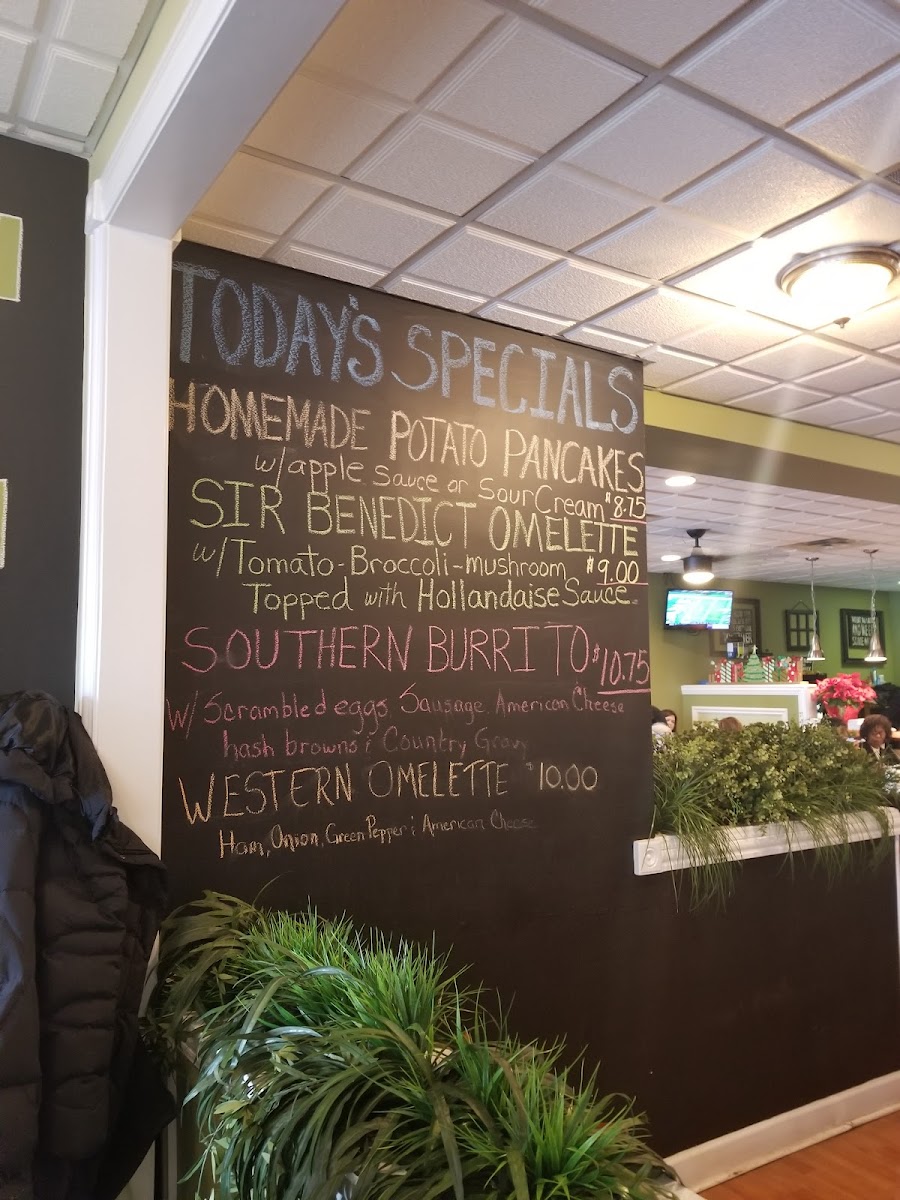 TODAY'S SPECIALS
HOMEMADE POTATO PANCAKES
w/apple sauce or Sour Cream $8.75
SIR BENEDICT OMELETTE
w/Tomato-Broccoli-mushroom $9.00
Topped with Hollandaise Sauce
SOUTHERN BURRITO $10.75
w/Scrambled eggs, Sausage, American Cheese
hash browns & Country Gravy
WESTERN OMELETTE $10.00
Ham, Onion, Green Pepper & American Cheese